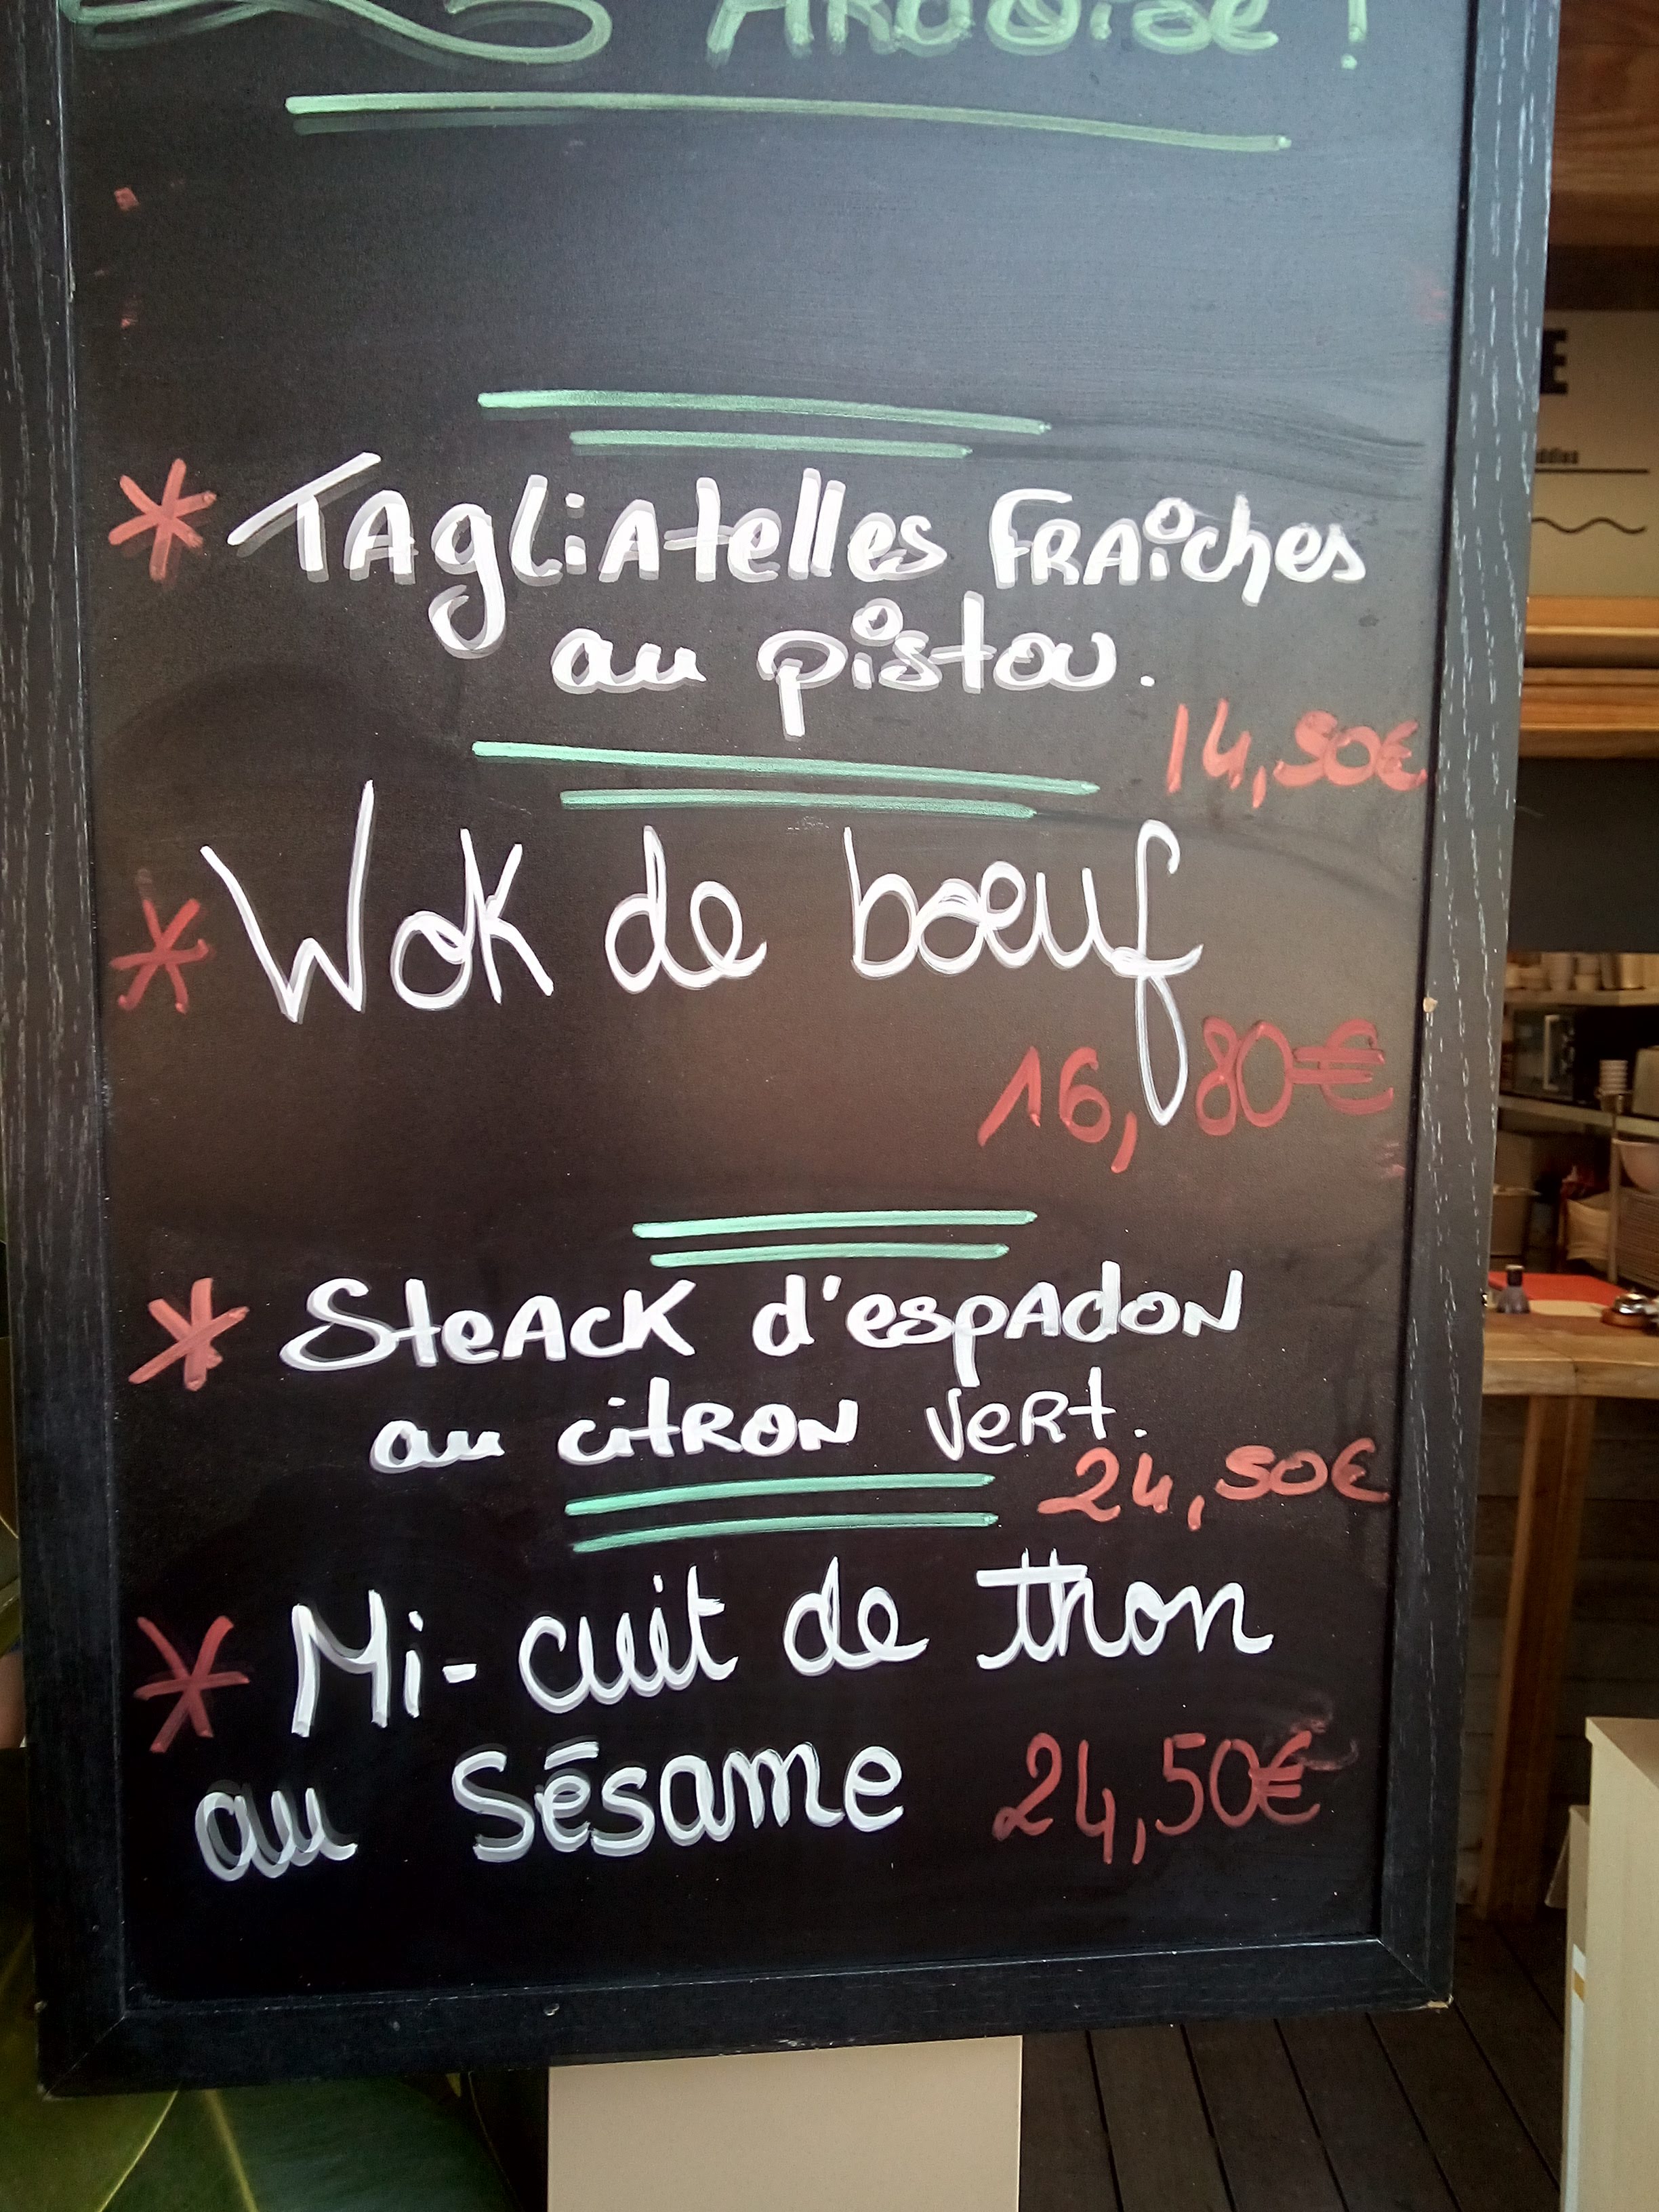 ARDOiSE !
TAgLiAtelles FRAîches
au pistou.
14,50€
Wok de bœuf
16,80€
SteAcK d'espAdoN
au citRON veRt.
24,50€
Mi-cuit de thon
au Sésame 24,50€